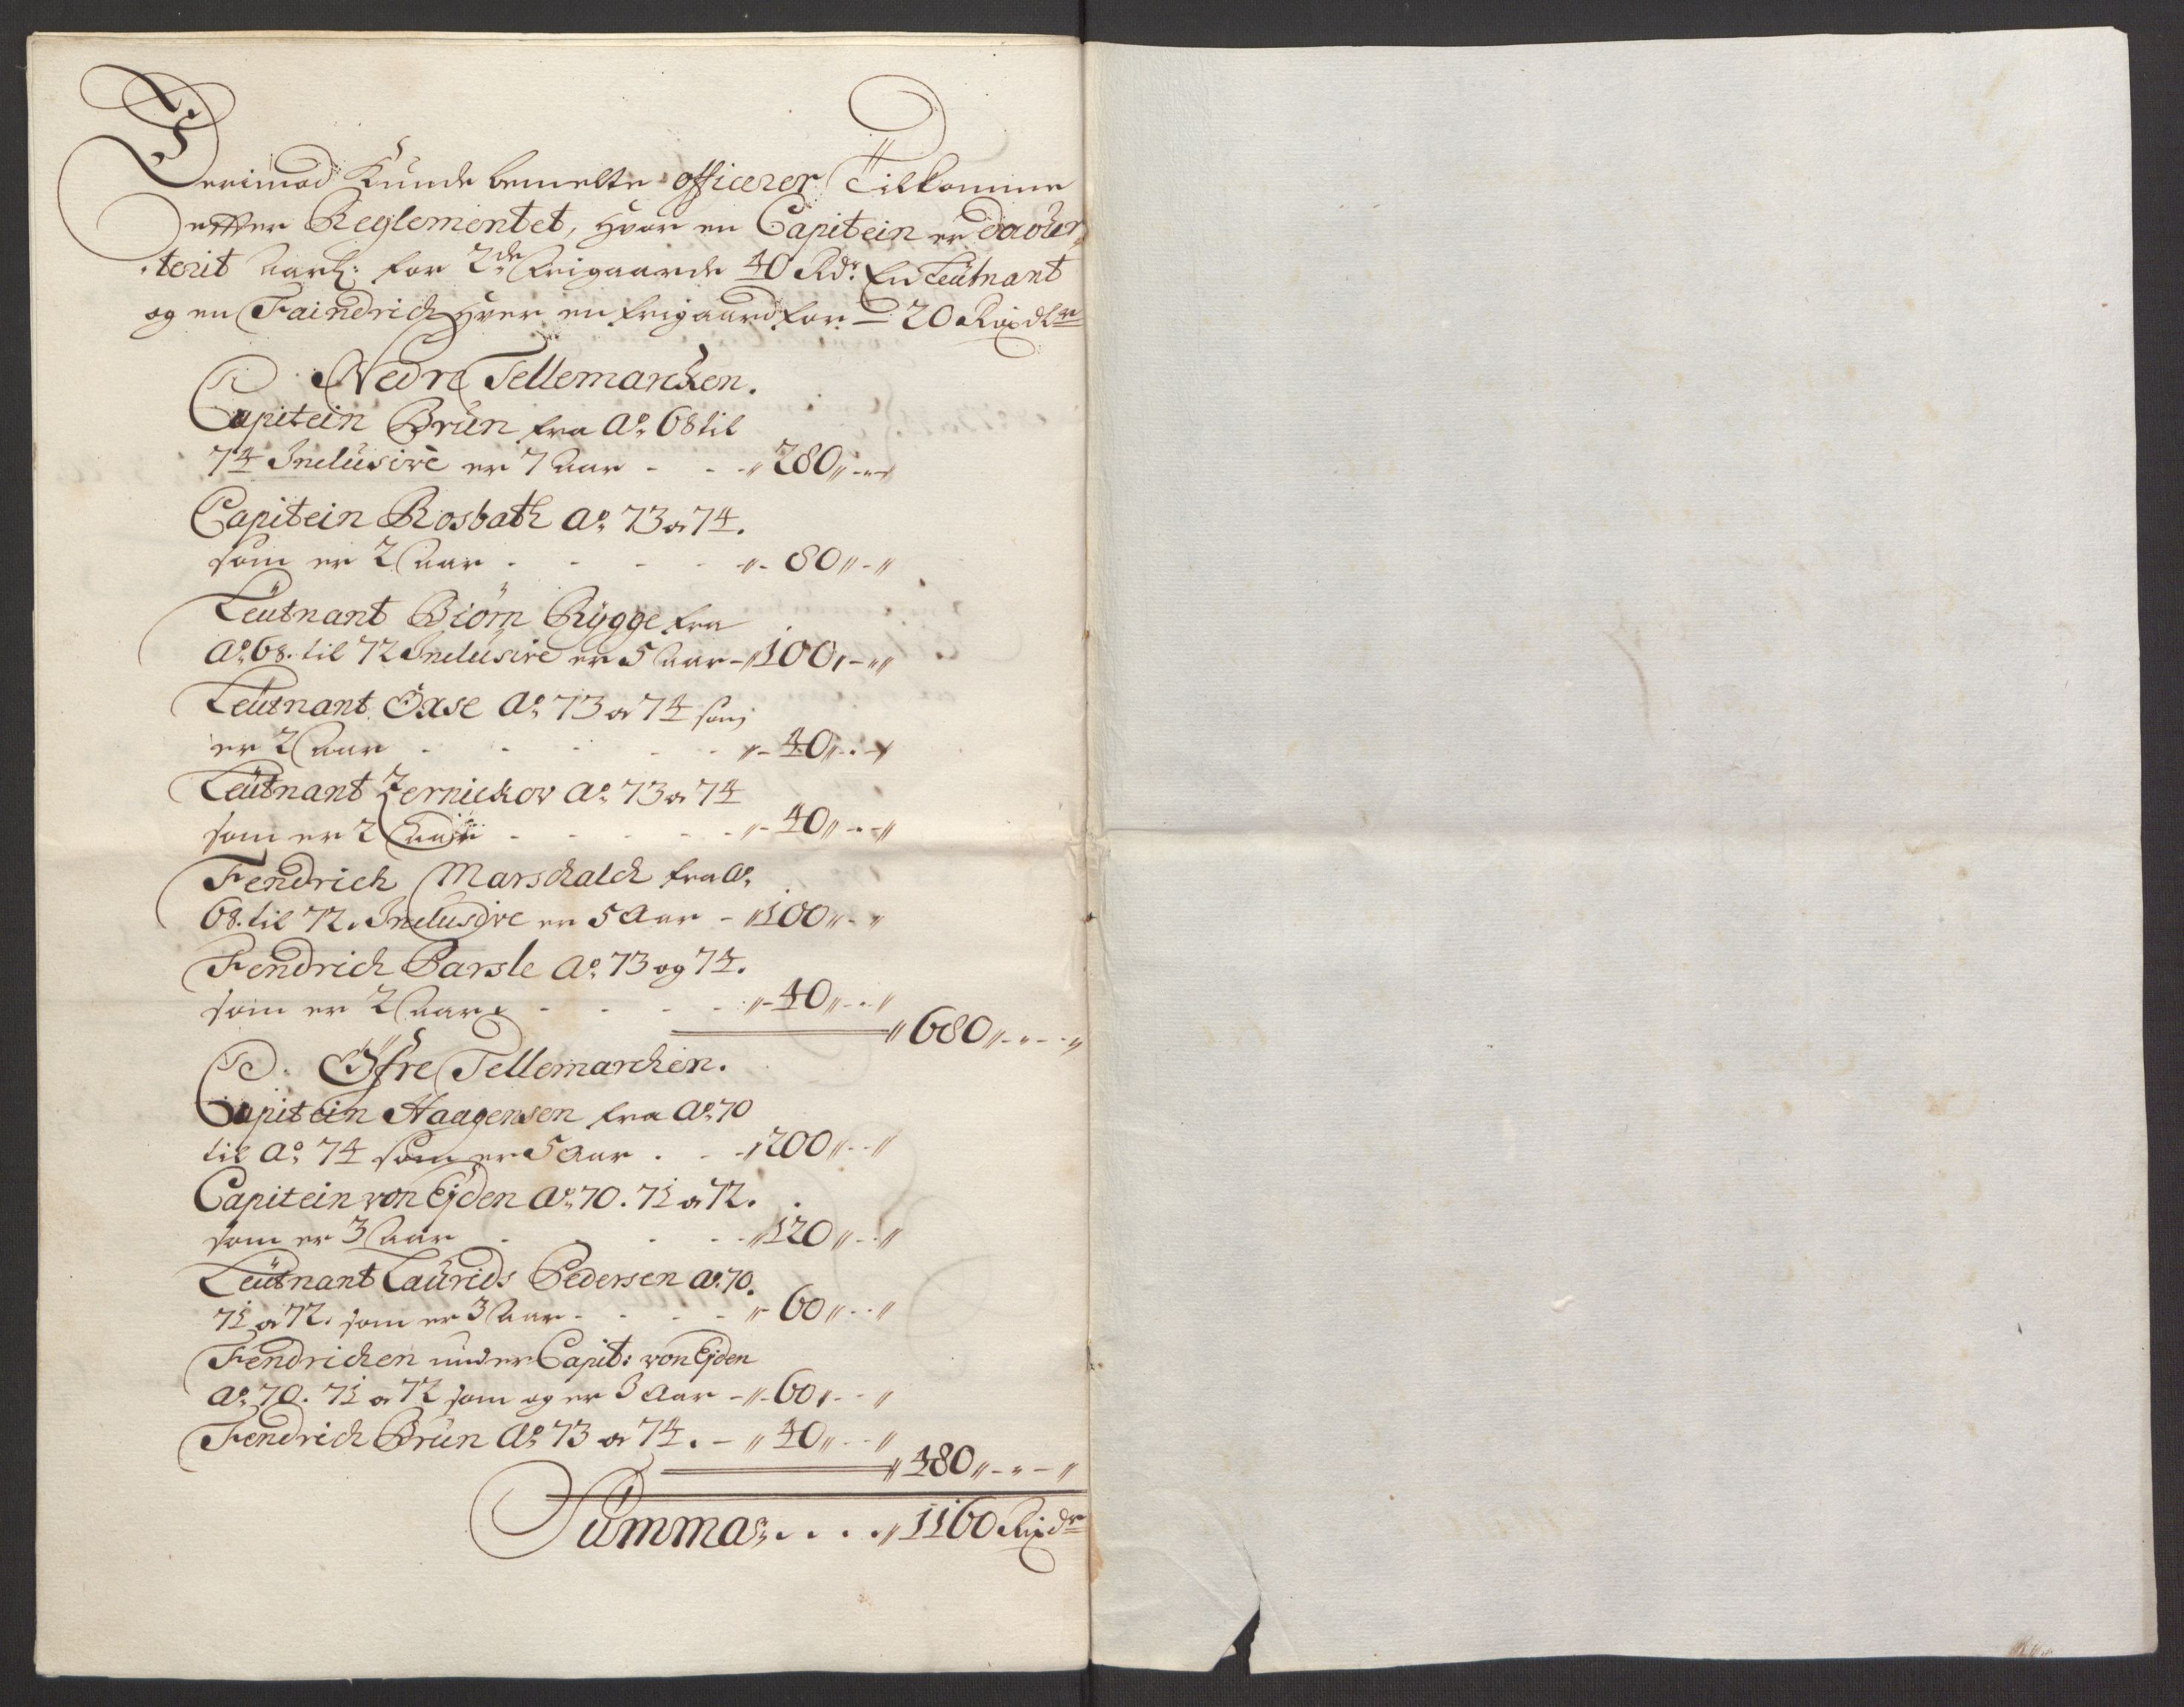 Derimod Kunde bemelte officerer Tilkomme
effter Reglementet, hvor en Capitein er
terit Aarl: for 2de frigaarde 40 Rdr. En Leütnant
og en Faindrich hver en frigaard for – 20 Rixdlr
Nedre Tellemarcken.
Capitein Brün fra Ao. 68 til
74 Inclüsive er 7 Aar - - - 280 - -
Capitein Rosbach Ao. 73 a 74.
som er 2 Aar - - - - 80 -
Leütnant Biörn Rÿgge fra
Ao. 68. til 72 Inclüsive er 5 Aar - 100 -
Leütnant Oxse Ao. 73 a 74 som
er 2 Aar - - - - - 40 - -
Leütnant Zernickov Ao. 73 a 74
som er 2 Aar - - - - - 40 - -
Fendrich Marschalck fra Ao.
68. til 72. Inclusive er 5 Aar - 100 -
Fendrich Barsle Ao. 73 og 74.
som er 2 Aar - - - - - 40 - -
680 - - -
Öfre Tellemarcken.
Capitein Haagensen fra Ao. 70
til Ao. 74 som er 5 Aar . - - 200 - -
Capitein von Ejden Ao. 70. 71 a 72.
som er 3 Aar - - - - 120 - -
Leütnant Laürids Pedersen Ao. 70.
71 a 72. som er 3 Aar - - - - 60 - -
Fendricken under Capit: von Ejden
Ao. 70. 71 a 72 som og er 3 Aar - 60 - -
Fendrich Brün Ao. 73 a 74. - 40 - -
480 - - -
Summa . . . . 1160 Rixdr